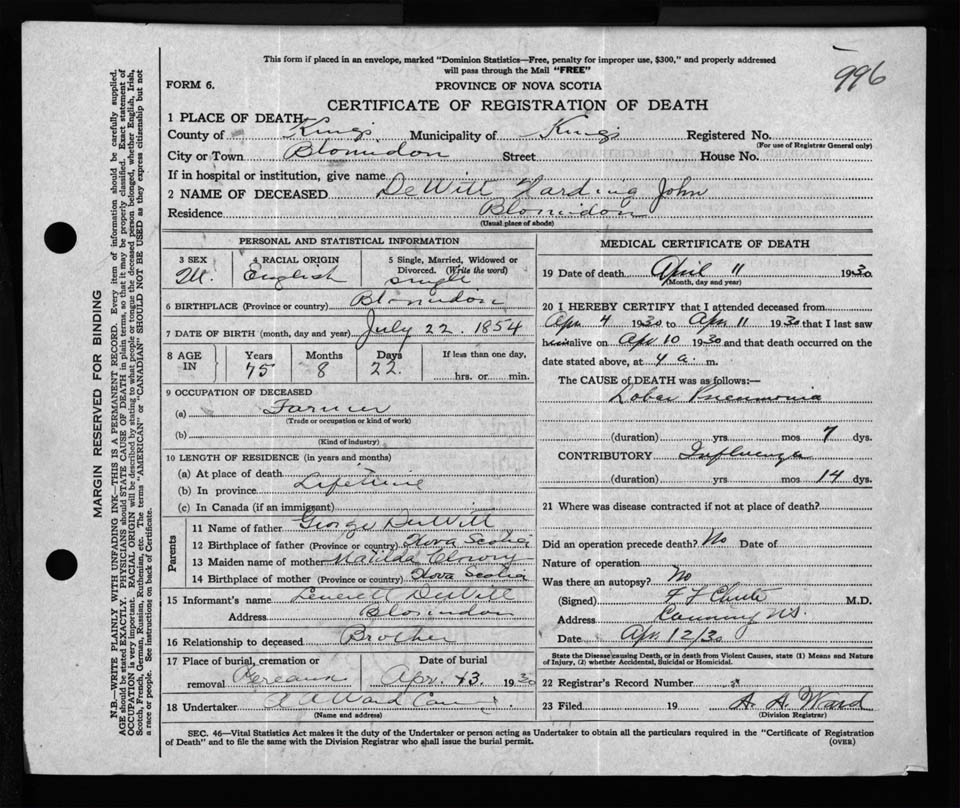 This form if placed in an envelope, marked "Dominion Statistics—Free, penalty for improper use, $300," and properly addressed
will pass through the Mail "FREE"
996
FORM 6.
PROVINCE OF NOVA SCOTIA
CERTIFICATE OF REGISTRATION OF DEATH
1 PLACE OF DEATH
County of Kings Municipality of Kings Registered No.
(For use of Registrar General only)
City or Town Blomidon Street House No.
If in hospital or institution, give name
2 NAME OF DECEASED DeWitt Harding John
Residence Blomidon
(Usual place of abode)
PERSONAL AND STATISTICAL INFORMATION
3 SEX 4 RACIAL ORIGIN 5 Single, Married, Widowed or
Divorced. (Write the word)
M. English single
6 BIRTHPLACE (Province or country) Blomidon
7 DATE OF BIRTH (month, day and year) July 22. 1854
8 AGE IN Years Months Days If less than one day,
75 8 22. hrs. or min.
9 OCCUPATION OF DECEASED
(a) Farmer
(Trade or occupation or kind of work)
(b)
(Kind of industry)
10 LENGTH OF RESIDENCE (in years and months)
(a) At place of death
(b) In province Lifetime
(c) In Canada (if an immigrant)
Parents
11 Name of father George DeWitt
12 Birthplace of father (Province or country) Nova Scotia
13 Maiden name of mother Matilda
14 Birthplace of mother (Province or country) Nova Scotia
15 Informant's name Leverett DeWitt
Address Blomidon
16 Relationship to deceased Brother
17 Place of burial, cremation or Date of burial
removal Pereaux Apr. 13. 1930
18 Undertaker A A Ward
(Name and address)
MEDICAL CERTIFICATE OF DEATH
19 Date of death April 11 1930
(Month, day and year)
20 I HEREBY CERTIFY that I attended deceased from
Apr 4 1930 to Apr 11 1930 that I last saw
him alive on Apr 10 1930 and that death occurred on the
date stated above, at 4 a. m.
The CAUSE OF DEATH was as follows:—
Lobar Pneumonia
(duration) yrs mos 7 dys.
CONTRIBUTORY Influenza
(duration) yrs mos 14 dys.
21 Where was disease contracted if not at place of death?
Did an operation precede death? No Date of
Nature of operation
Was there an autopsy? No
(Signed) F F Chute M.D.
Address Canning NS.
Date Apr 12/30
State the Disease causing Death, or in death from Violent Causes, state (1) Means and Nature
of Injury, (2) whether Accidental, Suicidal or Homicidal.
22 Registrar's Record Number
23 Filed 19 A. A. Ward
(Division Registrar)
SEC. 46—Vital Statistics Act makes it the duty of the Undertaker or person acting as Undertaker to obtain all the particulars required in the "Certificate of Registration
of Death" and to file the same with the Division Registrar who shall issue the burial permit.
(OVER)
MARGIN RESERVED FOR BINDING
N.B.—WRITE PLAINLY WITH UNFADING INK—THIS IS A PERMANENT RECORD. Every item of information should be carefully supplied.
AGE should be stated EXACTLY. PHYSICIANS should STATE CAUSE OF DEATH in plain terms, so that it may be properly classified. Exact statement of
OCCUPATION is very important. RACIAL ORIGIN will be described by stating to what people or tongue the deceased person belonged, whether English, Irish,
Scotch, French, German, Russian, Ruthenian, etc. The terms "AMERICAN" or "CANADIAN" SHOULD NOT BE USED as they express citizenship but not
a race or people. See instructions on back of Certificate.